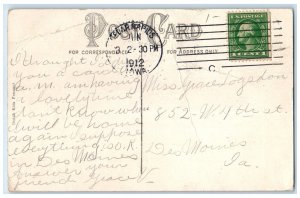 POST CARD
FOR CORRESPONDENCE
FOR ADDRESS ONLY
CEDAR RAPIDS
2-30 PM
1912
IOWA
C
I thought I'd
you a card
a.m. am having
a lovely time
don't know when
I will be home
again suppose
everything is O.K.
in Des Moines
answer your
friend Grace V.
Miss Grace
852-W. 4th st.
Des Moines
Ia.